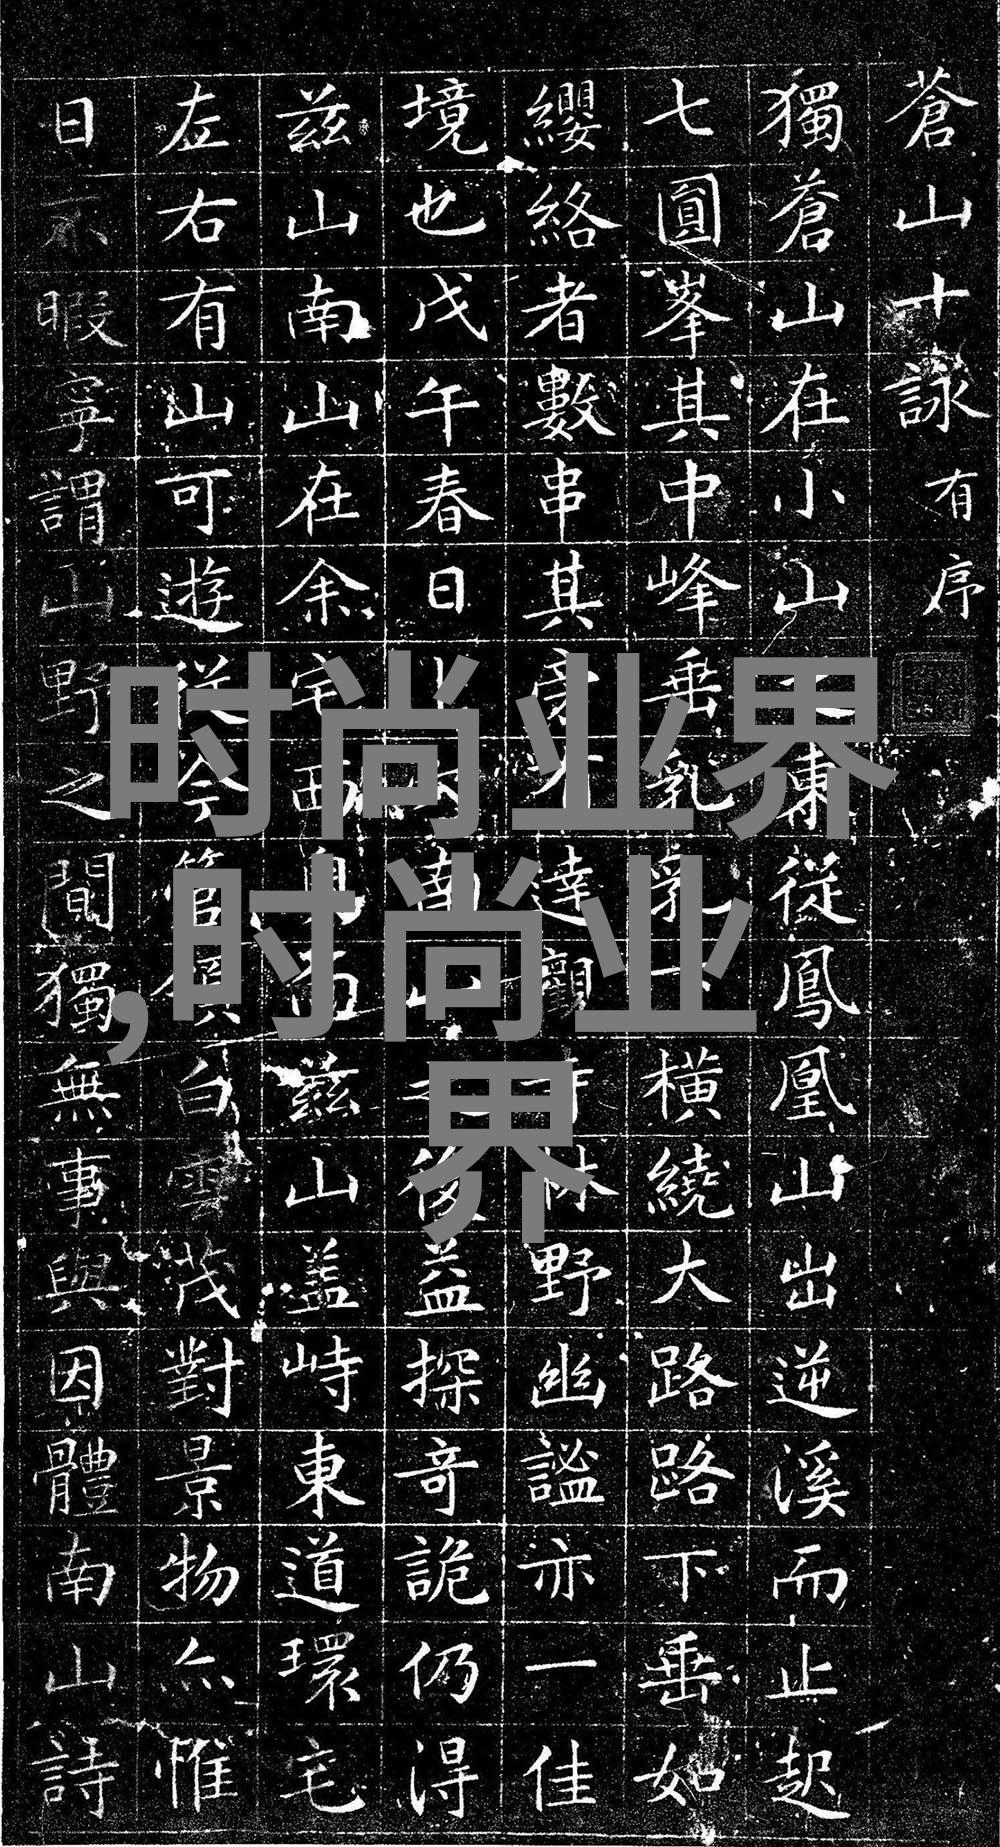 蒼山十詠有序
獨蒼山在小山東從鳳凰山出逆溪而止起
七圓峯其中峰垂乳乳橫繞大路路下垂如
纓絡者數串其旁達觀林野幽謐亦一佳
境也戊午春日南山益探奇詭仍得
茲山南山在余宅西茲山蓋峙東道環宅
左右有山可遊從今管領白雲茂對景物亦惟
日不暇寧謂山野之間獨無事與因體南山詩
时尚业界
,时尚业
界